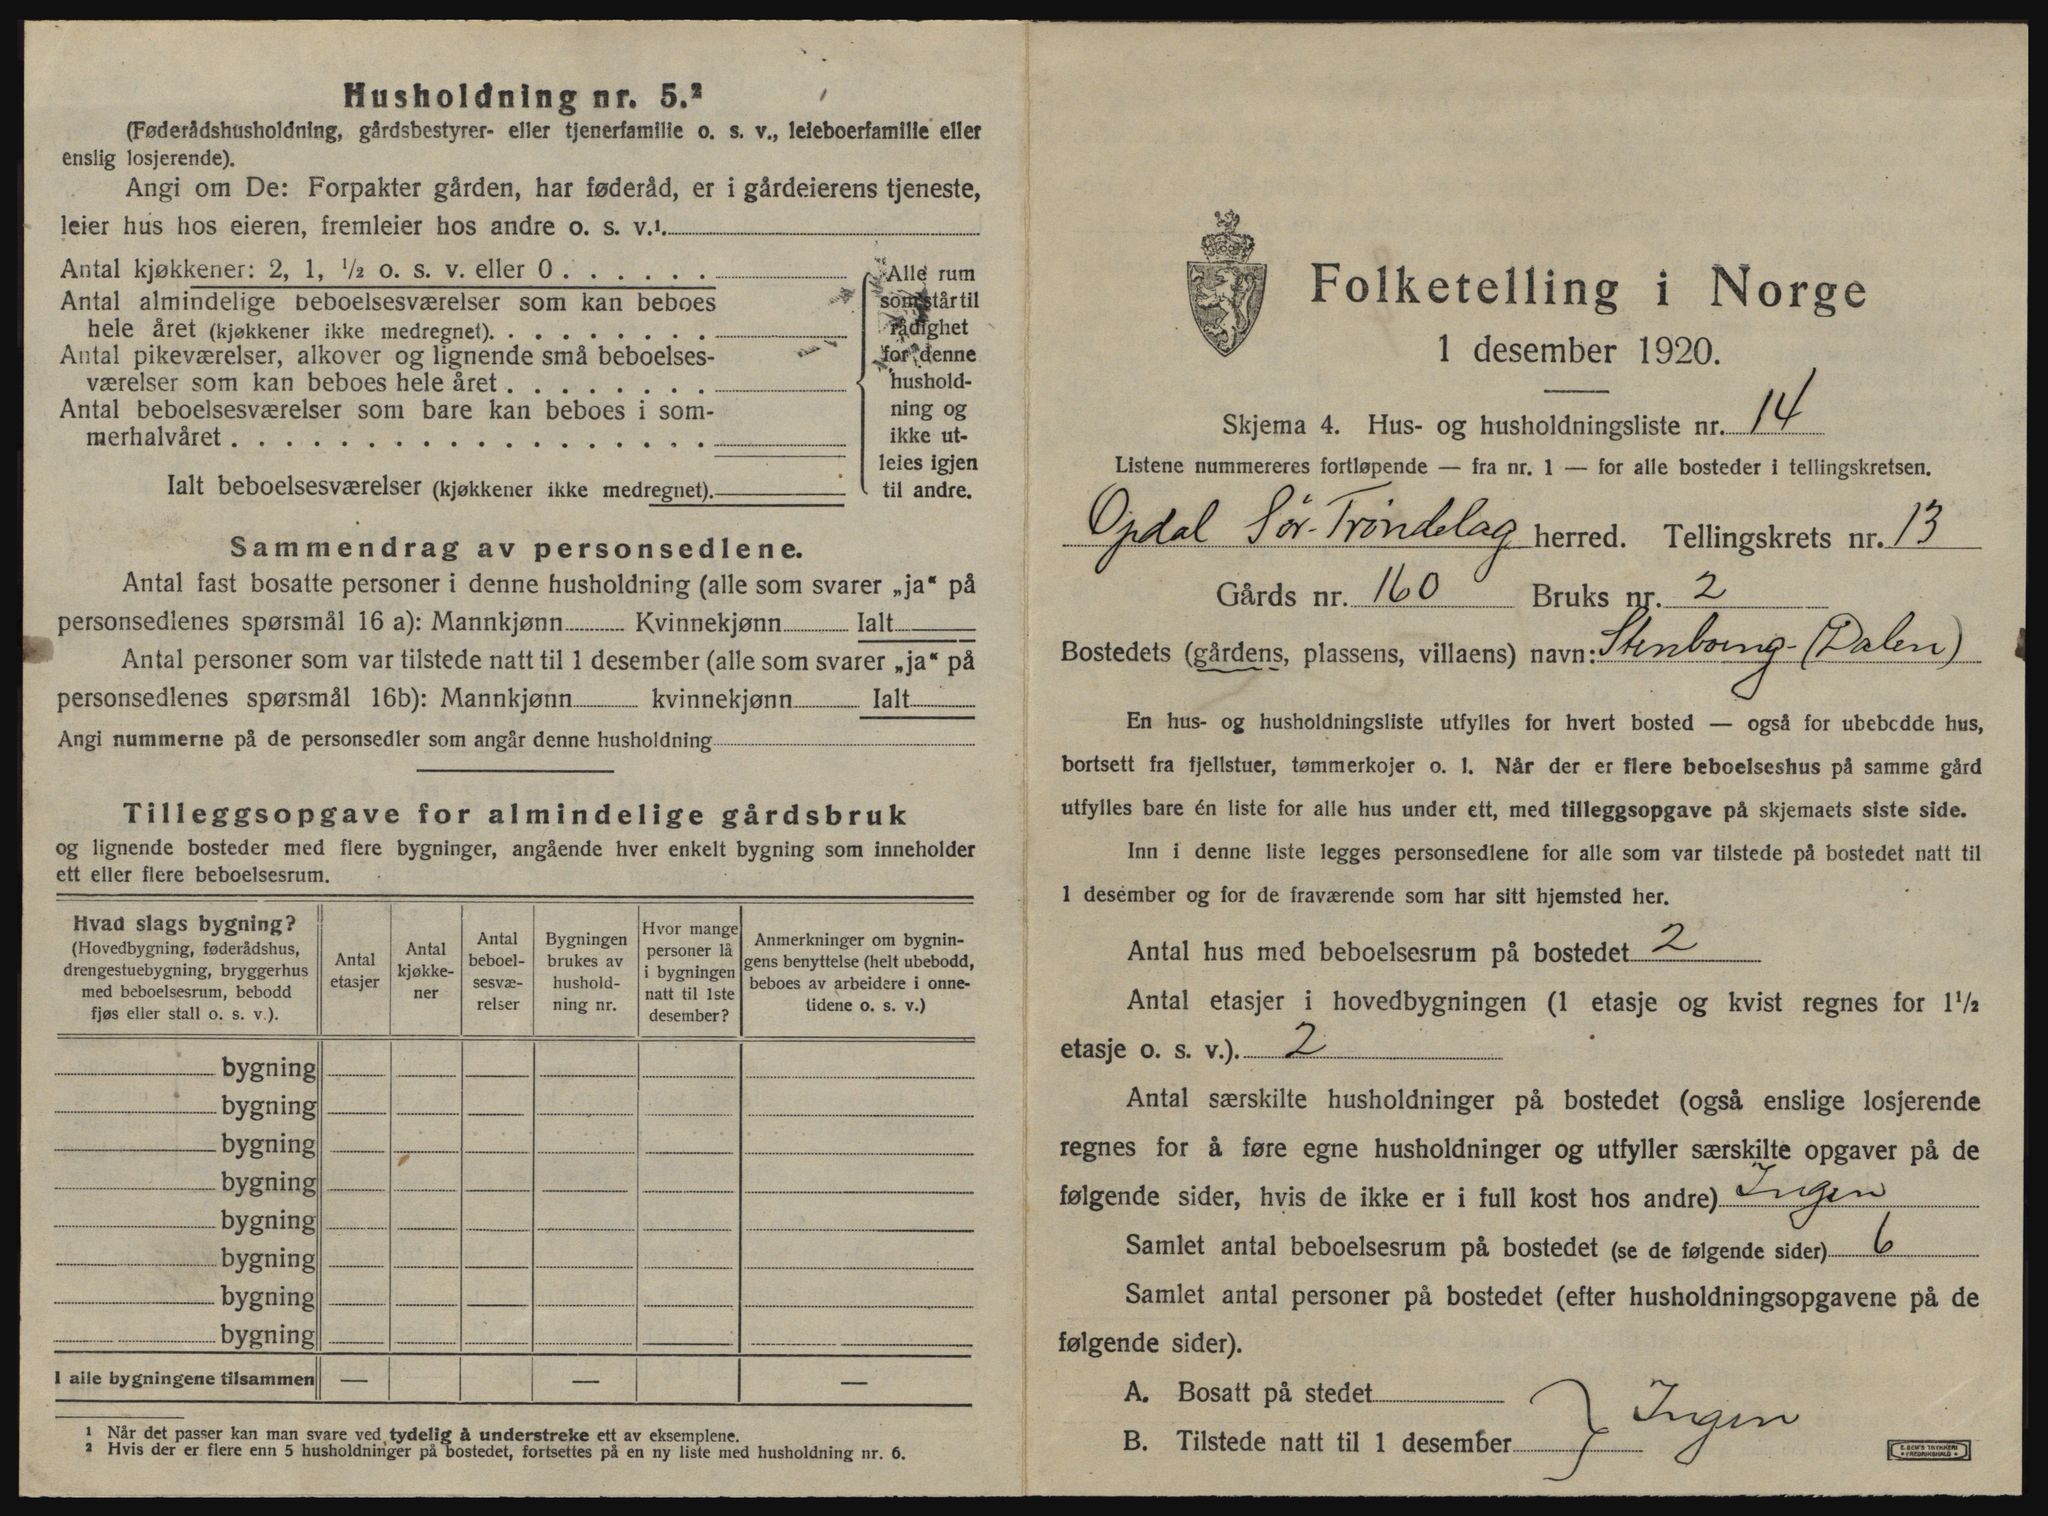 Husholdning nr. 5.²
(Føderådshusholdning, gårdsbestyrer- eller tjenerfamilie o. s. v., leieboerfamilie eller
enslig losjerende).
Angi om De: Forpakter gården, har føderåd, er i gårdeierens tjeneste,
leier hus hos eieren, fremleier hos andre o. s. v.¹
Antal kjøkkener: 2, 1, ½ o. s. v. eller 0 . . . . . .
Antal almindelige beboelsesværelser som kan beboes
hele året (kjøkkener ikke medregnet). . . . . . . . .
Antal pikeværelser, alkover og lignende små beboelses-
værelser som kan beboes hele året . . . . . . . .
Antal beboelsesværelser som bare kan beboes i som-
merhalvåret . . . . . . . . . . . . . . . . . .
Ialt beboelsesværelser (kjøkkener ikke medregnet).
Alle rum
som står til
rådighet
for denne
hushold-
ning og
ikke ut-
leies igjen
til andre.
Sammendrag av personsedlene.
Antal fast bosatte personer i denne husholdning (alle som svarer „ja“ på
personsedlenes spørsmål 16 a): Mannkjønn Kvinnekjønn Ialt
Antal personer som var tilstede natt til 1 desember (alle som svarer „ja“ på
personsedlenes spørsmål 16b): Mannkjønn kvinnekjønn Ialt
Angi nummerne på de personsedler som angår denne husholdning
Tilleggsopgave for almindelige gårdsbruk
og lignende bosteder med flere bygninger, angående hver enkelt bygning som inneholder
ett eller flere beboelsesrum.
Hvad slags bygning?
(Hovedbygning, føderådshus,
drengestuebygning, bryggerhus
med beboelsesrum, bebodd
fjøs eller stall o. s. v.).
Antal
etasjer
Antal
kjøkke-
ner
Antal
beboel-
sesvæ-
relser
Bygningen
brukes av
hushold-
ning nr.
Hvor mange
personer lå
i bygningen
natt til 1ste
desember?
Anmerkninger om bygnin-
gens benyttelse (helt ubebodd,
beboes av arbeidere i onne-
tidene o. s. v.)
bygning
bygning
bygning
bygning
bygning
bygning
bygning
bygning
I alle bygningene tilsammen — — —
¹ Når det passer kan man svare ved tydelig å understreke ett av eksemplene.
² Hvis der er flere enn 5 husholdninger på bostedet, fortsettes på en ny liste med husholdning nr. 6.
Folketelling i Norge
1 desember 1920.
Skjema 4. Hus- og husholdningsliste nr. 14
Listene nummereres fortløpende — fra nr. 1 — for alle bosteder i tellingskretsen.
Opdal Sör-Tröndelag herred. Tellingskrets nr. 13
Gårds nr. 160 Bruks nr. 2
Bostedets (gårdens, plassens, villaens) navn: (Dalen)
En hus- og husholdningsliste utfylles for hvert bosted — også for ubebodde hus,
bortsett fra fjellstuer, tømmerkojer o. l. Når der er flere beboelseshus på samme gård
utfylles bare én liste for alle hus under ett, med tilleggsopgave på skjemaets siste side.
Inn i denne liste legges personsedlene for alle som var tilstede på bostedet natt til
1 desember og for de fraværende som har sitt hjemsted her.
Antal hus med beboelsesrum på bostedet 2
Antal etasjer i hovedbygningen (1 etasje og kvist regnes for 1½
etasje o. s. v.). 2
Antal særskilte husholdninger på bostedet (også enslige losjerende
regnes for å føre egne husholdninger og utfyller særskilte opgaver på de
følgende sider, hvis de ikke er i full kost hos andre) Ingen
Samlet antal beboelsesrum på bostedet (se de følgende sider) 6
Samlet antal personer på bostedet (efter husholdningsopgavene på de
følgende sider).
A. Bosatt på stedet
B. Tilstede natt til 1 desember
Ingen
E. SEM'S TRYKKERI
FREDRIKSHALD